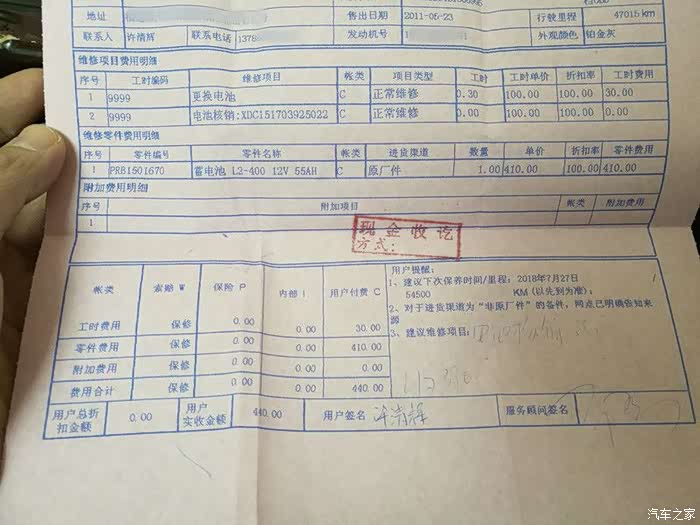 地址 售出日期 2011-05-23 行驶里程 47015 km
联系人 许情辉 联系电话 1378 发动机号 1 外观颜色 铂金灰
维修项目费用明细
序号 工时编码 维修项目 帐类 项目类型 工时 工时单价 折扣率 工时费用
1 9999 更换电池 C 正常维修 0.30 100.00 100.00 30.00
2 9999 电池核销:XDC151703925022 C 正常维修 0.00 100.00 100.00 0.00
维修零件费用明细
序号 零件编号 零件名称 帐类 进货渠道 数量 单价 折扣率 零件费用
1 PRB1501670 蓄电池 L2-400 12V 55AH C 原厂件 1.00 410.00 100.00 410.00
附加费用明细
序号 附加项目 帐类 附加费用
1
现金收讫
方式:
帐类 索赔 W 保险 P 内部 I 用户付费 C
工时费用 保修 0.00 0.00 30.00
零件费用 保修 0.00 0.00 410.00
附加费用 保修 0.00 0.00 0.00
费用合计 保修 0.00 0.00 440.00
用户提醒:
1、建议下次保养时间/里程: 2018年7月27日 /
54500 KM(以先到为准);
2、对于进货渠道为“非原厂件”的备件,网点已明确告知来
源
3、建议维修项目:
用户总折扣金额 0.00 用户实收金额 440.00 用户签名 服务顾问签名
汽车之家